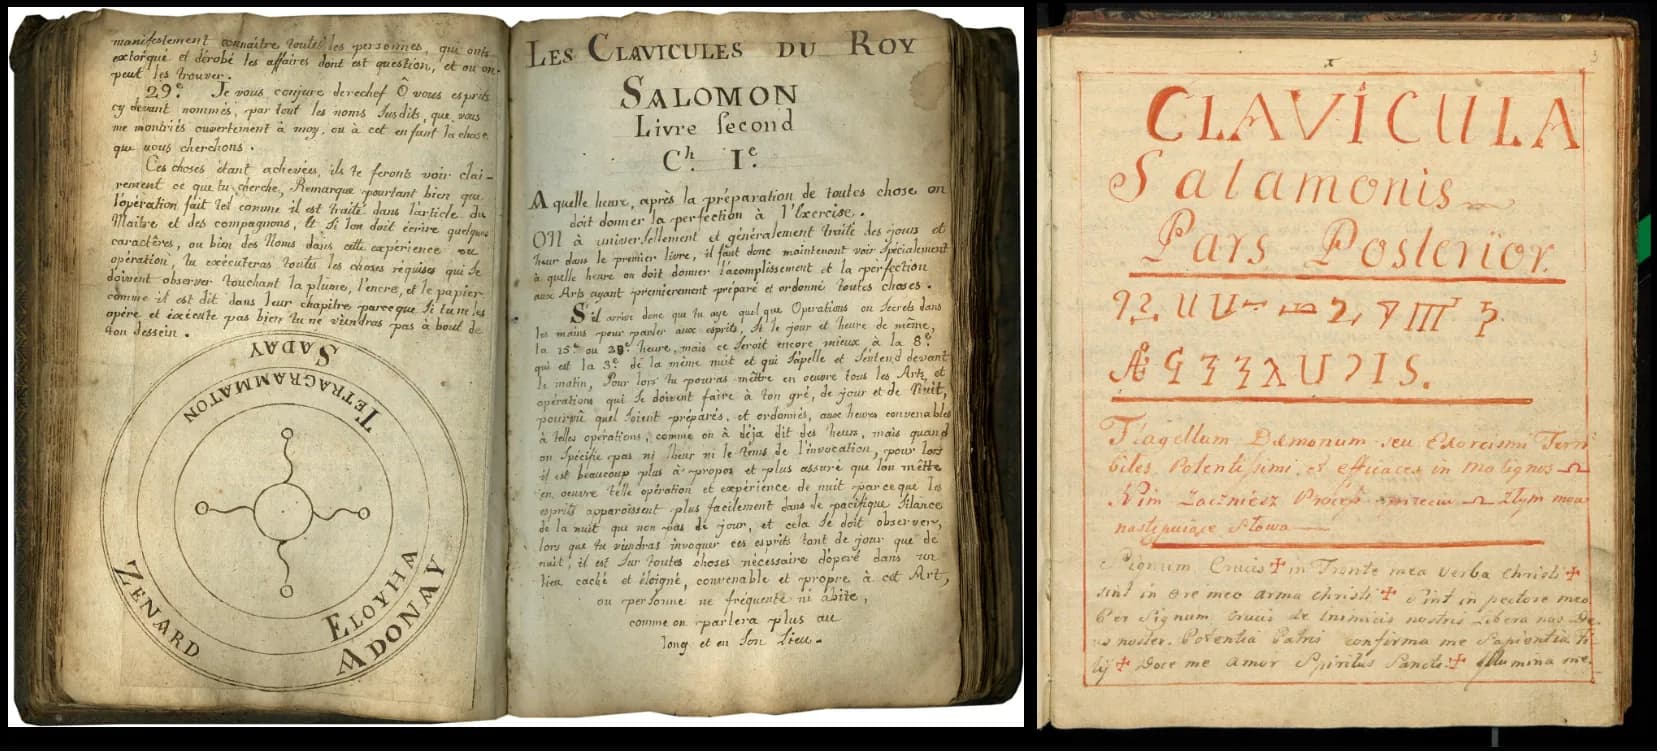 manifestement connaitre toutes les personnes, qui onts
extorqué et dérobé les affaires dont est question, et ou on
peut les trouver.
29.e Je vous conjure derechef Ô vous esprits
cy devant nommés, par tout les noms susdits, que vous
me montriés ouvertement à moy, ou à cet enfant la chose
que nous cherchons.
Ces choses étant achevées, ils te feronts voir clai-
rement ce que tu cherche, Remarque pourtant bien que
l'opération fait tel comme il est traité dans l'article du
Maitre et des compagnons, Et Si l'on doit écrire quelques
caractères, ou bien des Noms dans cette expérience ou
opération, tu exécuteras toutes les choses réquises qui se
doivent observer touchant la plume, l'encre, et le papier
comme il est dit dans leur chapitre parceque Si tu ne les
opère et éxécute pas bien tu ne viendras pas à bout de
ton dessein.
SADAY
TETRAGRAMMATON
ZENARD
ELOYHA
ADONAY
LES CLAVICULES DU ROY
SALOMON
Livre second
Ch. I.e
A quelle heure, après la préparation de toutes chose on
doit donner la perfection à l'Exercise.
ON à universellement et généralement traité des jours et
heur dans le premier livre, il faut donc maintenant voir spécialement
à quelle heure on doit donner l'acomplissement et la perfection
aux Arts ayant premierement préparé et ordonné toutes choses.
S'il arrive donc que tu aye quelque Operations ou Secrets dans
les mains pour parler aux esprits, Si le jour et heure de même,
la 15e ou heure, mais ce seroit encore mieux à la 8.e
qui est la 3.e de la même nuit et qui s'apelle et s'entend devant
le matin, Pour lors tu pouras mêttre en oeuvre tous les Arts et
opérations qui se doivent faire à ton gré, de jour et de Nuit,
pourvû quel soient préparés, et ordonnés, aux heures convenables
à telles opérations, comme on à déja dit des heurs, mais quand
on spécifie pas ni l'heur ni le tems de l'invocation, pour lors
il est beaucoup plus à propos et plus assuré que l'on mêtte
en oeuvre telle opération et expérience de nuit parceque les
esprits apparoissent plus facilement dans le pacifique silance
de la nuit que non pas de jour, et cela se doit observer,
lors que tu viendras invoquer ces esprits tant de jour que de
nuit, il est sur toutes choses nécessaire d'operé dans un
lieu caché et éloigné, convenable et propre à cet Art,
ou personne ne fréquente ni abite,
comme on parlera plus au
long et en son Lieu.
3
CLAVICULA
Salamonis
Pars Posterior.
Flagellum Dæmonum seu Exorcismi Terri
biles, Potentissimi, et efficaces in malignos
Nim Zaczniesz Złym mow
następuiące słowa
Signum Crucis ✝ in Fronte mea Verba Christi ✝
sint in ore meo arma Christi ✝ Sint in pectore meo
Per Signum Crucis de Inimicis nostris Libera nos De
us noster. Potentia Patris confirma me Sapientia Fi
lij ✝ Doce me Amor Spiritus Sancti ✝ Illumina me.